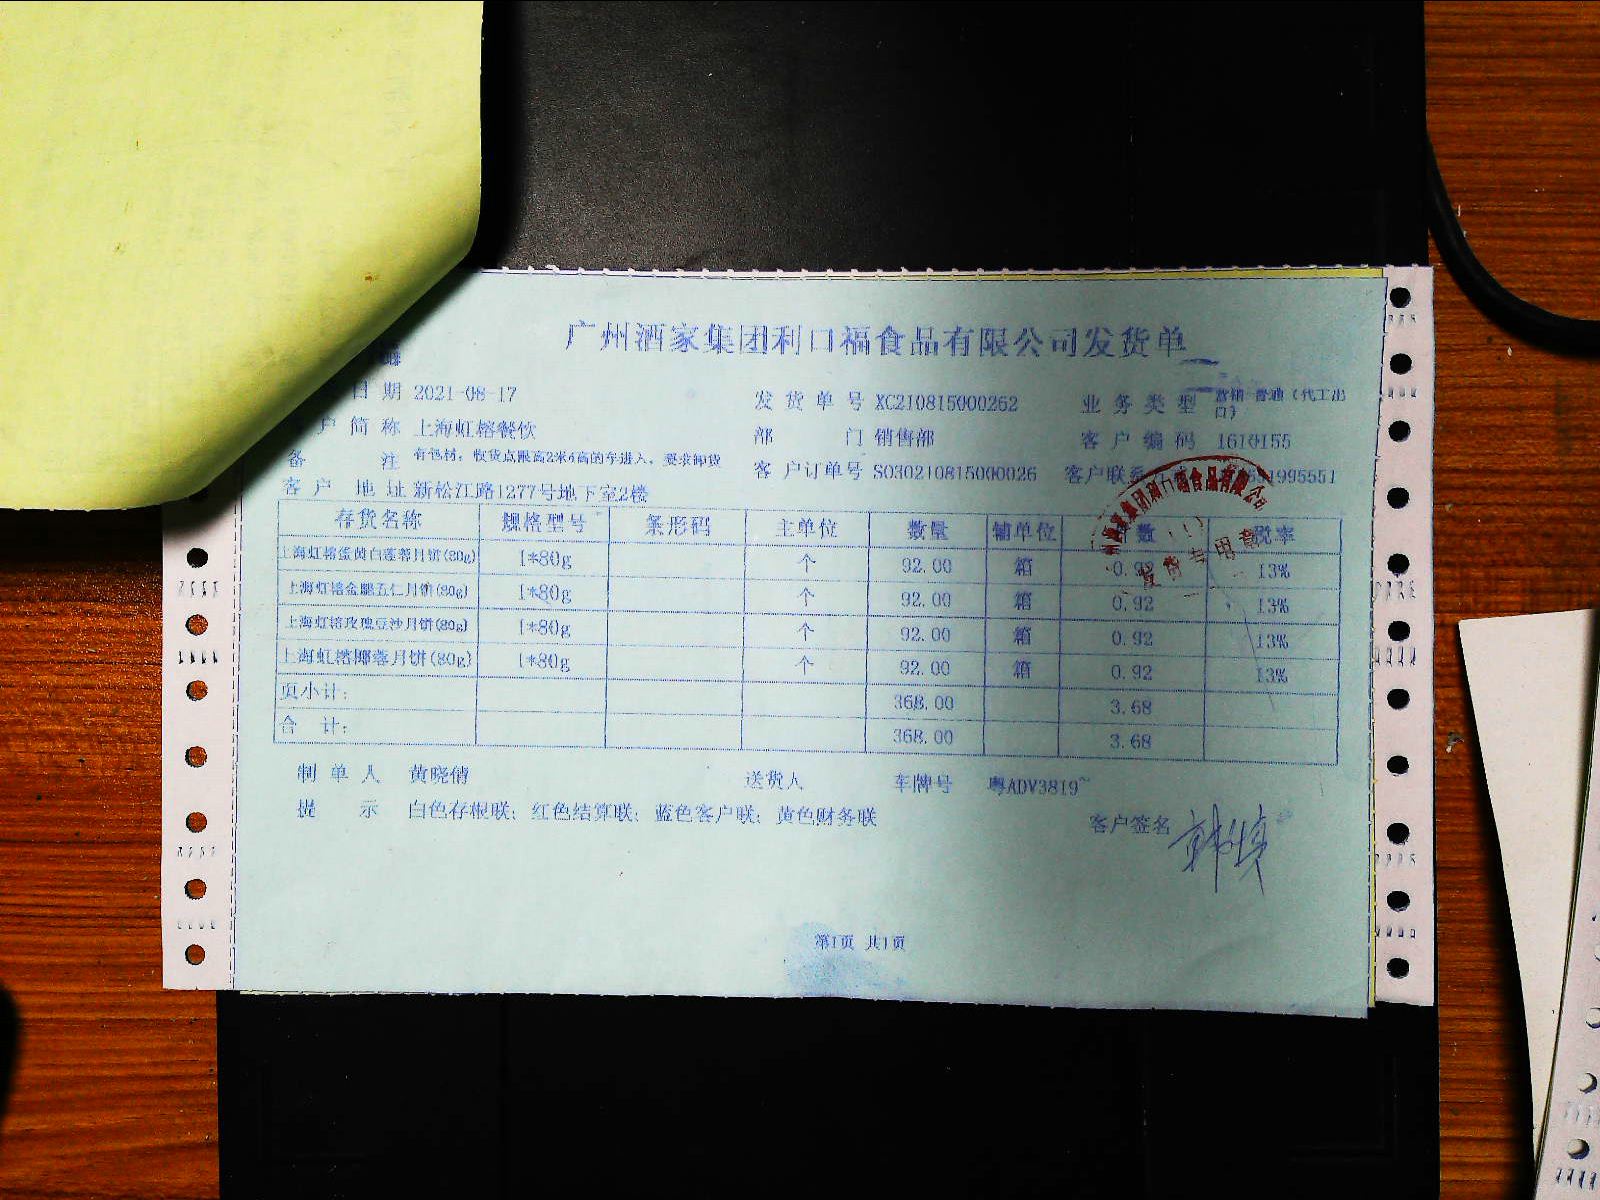 广州酒家集团利口福食品有限公司发货单
日期 2021-08-17 发货单号 XC210815000262 业务类型 营销-普通(代工出口)
户简称 上海虹榕餐饮 部门 销售部 客户编码 1610155
备注 有包材，收货点限高2米4高的车进入，要求卸货 客户订单号 SO30210815000026 客户联系 51995551
客户地址 新松江路1277号地下室2楼
存货名称 规格型号 条形码 主单位 数量 辅单位 数 税率
上海虹榕蛋黄白莲蓉月饼(80g) 1*80g 个 92.00 箱 0.92 13%
上海虹榕金腿五仁月饼(80g) 1*80g 个 92.00 箱 0.92 13%
上海虹榕玫瑰豆沙月饼(80g) 1*80g 个 92.00 箱 0.92 13%
上海虹榕椰蓉月饼(80g) 1*80g 个 92.00 箱 0.92 13%
页小计: 368.00 3.68
合 计: 368.00 3.68
制单人 黄晓倩 送货人 车牌号 粤ADV3819~
提示 白色存根联; 红色结算联; 蓝色客户联; 黄色财务联
客户签名
第1页 共1页